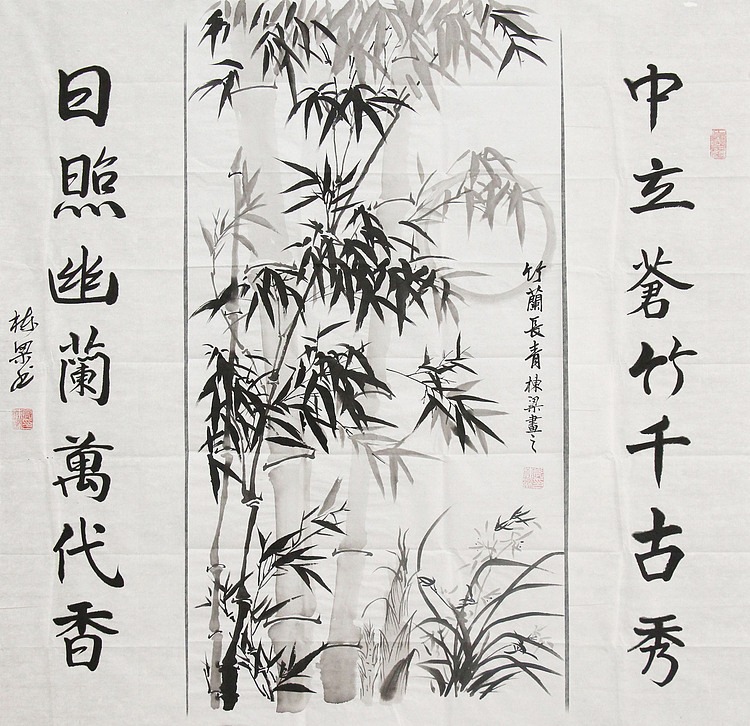 中立蒼竹千古秀
竹蘭長青 棟梁畫之
日照幽蘭萬代香
棟梁书